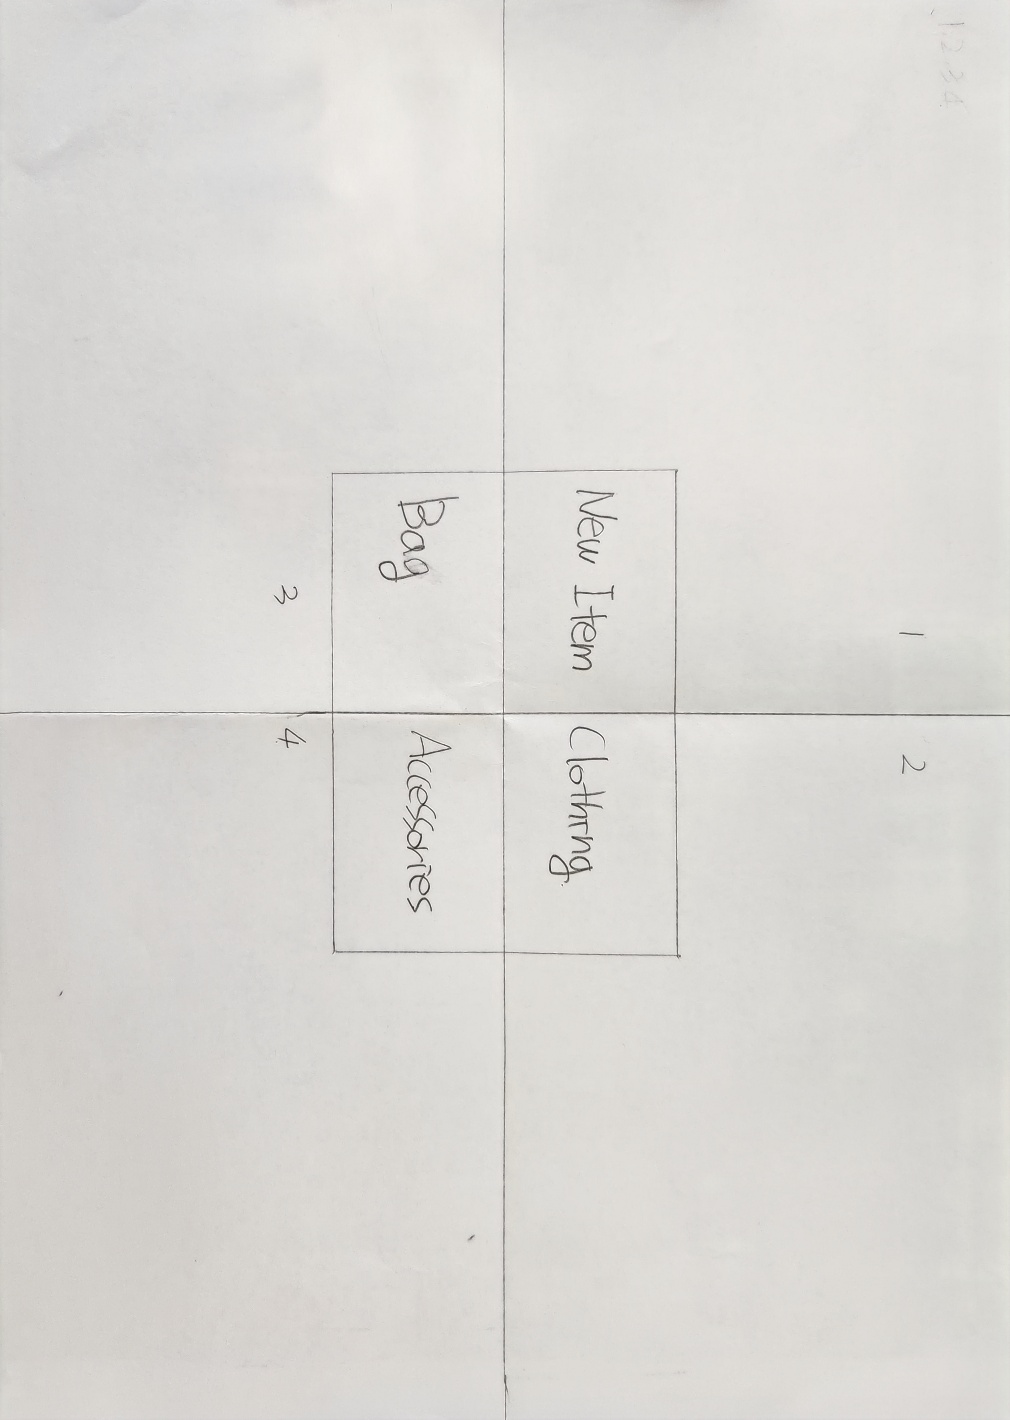 1.2.3.4.
1
2
New Item
Clothing
Bag
Accessories
3
4